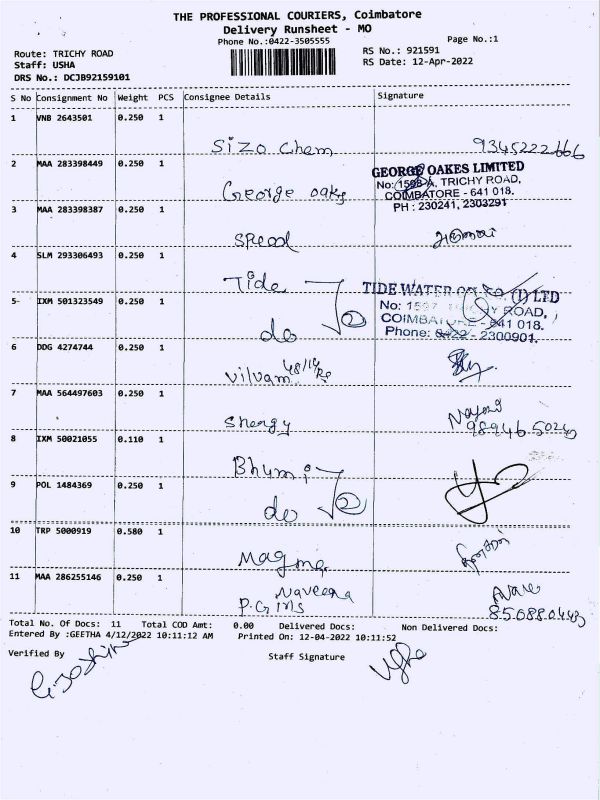 THE PROFESSIONAL COURIERS, Coimbatore
Delivery Runsheet - MO
Phone No.:0422-3505555
Page No.:1
Route: TRICHY ROAD
Staff: USHA
DRS No.: DCJB92159101
RS No.: 921591
RS Date: 12-Apr-2022
S No Consignment No Weight PCS Consignee Details Signature
1 VNB 2643501 0.250 1
Sizo Chem 9345222666
2 MAA 283398449 0.250 1
George oaks
GEORGE OAKES LIMITED
No: 1598-A, TRICHY ROAD,
COIMBATORE - 641 018.
PH : 230241, 2303291
3 MAA 283398387 0.250 1
Speed
4 SLM 293306493 0.250 1
Tide
5 IXM 501323549 0.250 1
do
TIDE WATER OIL CO. (I) LTD
No: 1597 TRICHY ROAD,
COIMBATORE - 641 018.
Phone: 0422 - 2300901.
6 DDG 4274744 0.250 1
Vilvam
7 MAA 564497603 0.250 1
Shengy
8 IXM 50021055 0.110 1
Bhumi
9 POL 1484369 0.250 1
do
10 TRP 5000919 0.580 1
Magma
11 MAA 286255146 0.250 1
Naveena
Total No. Of Docs: 11 Total COD Amt: 0.00 Delivered Docs: Non Delivered Docs:
Entered By :GEETHA 4/12/2022 10:11:12 AM Printed On: 12-04-2022 10:11:52
Verified By Staff Signature
Usha